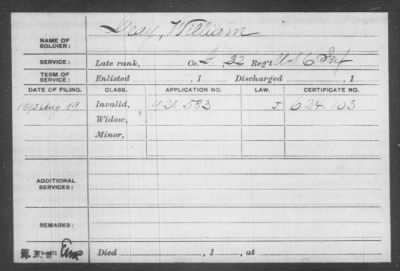 NAME OF SOLDIER: Gray, William
SERVICE: Late rank, Co. , 32 Reg't U.S.C. Inf
TERM OF SERVICE: Enlisted , 1 Discharged , 1
DATE OF FILING. CLASS. APPLICATION NO. LAW. CERTIFICATE NO.
Aug 19 Invalid, 920.583 J 624.103
Widow,
Minor,
ADDITIONAL SERVICES:
REMARKS:
Died , 1 , at